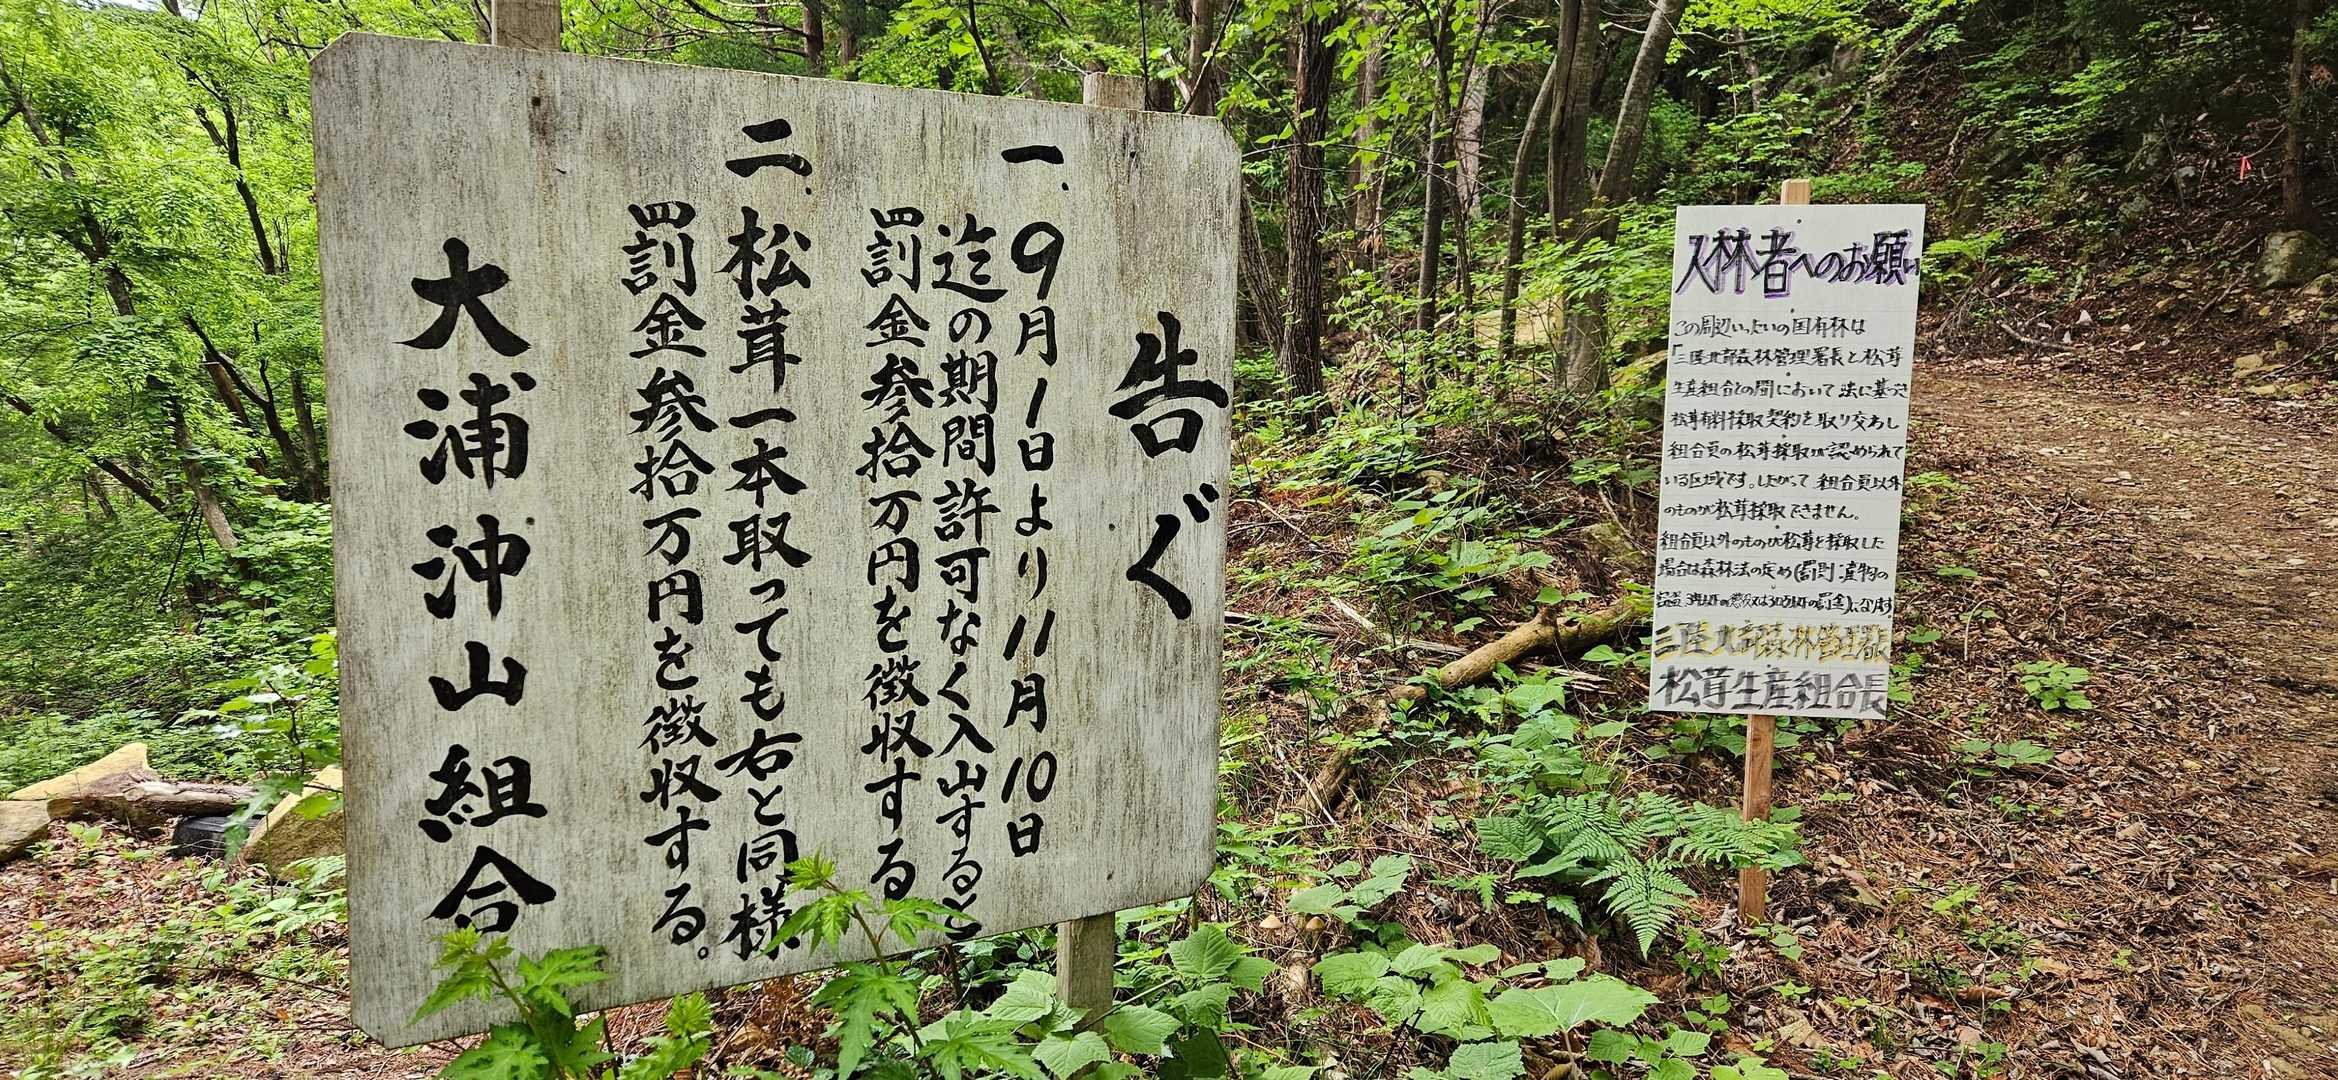 告ぐ
一、9月1日より11月10日
迄の期間許可なく入山すると
罰金参拾万円を徴収する
二、松茸一本取っても右と同様
罰金参拾万円を徴収する。
大浦沖山組合
入林者へのお願い
この周辺いったいの国有林は
「三陸北部森林管理署長と松茸
生産組合との間において法に基づき
松茸有料採取契約を取り交わし
組合員の松茸採取が認められて
いる区域です。したがって組合員以外
のものが松茸採取できません。
組合員以外のものが松茸を採取した
場合は森林法の定め(罰則:産物の
窃盗3年以下の懲役又は30万以下の罰金)になります
三陸北部森林管理署長
松茸生産組合長